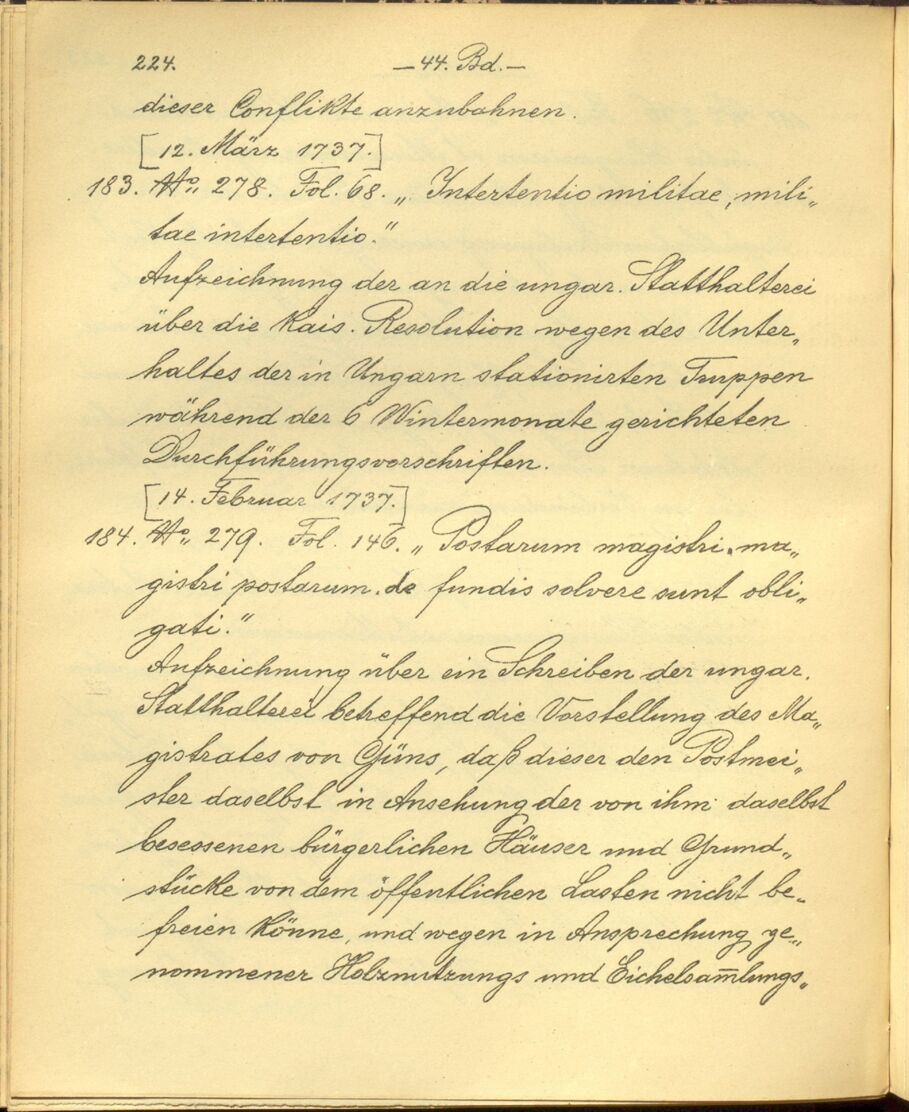 224. — 44. Bd. —
dieser Conflikte anzubahnen.
[12. März 1737.]
183. No„ 278. Fol. 68. „Intertentio militae, mili„
tae intertentio."
Aufzeichnung der an die ungar. Statthalterei
über die Kais. Resolution wegen des Unter„
haltes der in Ungarn stationirten Truppen
während der 6 Wintermonate gerichteten
Durchführungsvorschriften.
[14. Februar 1737.]
184. No„ 279. Fol. 146. „Postarum magistri, ma„
gistri postarum. de fundis solvere sunt obli„
gati."
Aufzeichnung über ein Schreiben der ungar.
Statthalterei betreffend die Vorstellung des Ma„
gistrates von Güns, daß dieser den Postmei„
ster daselbst in Ansehung der von ihm daselbst
besessenen bürgerlichen Häuser und Grund„
stücke von dem öffentlichen Lasten nicht be„
freien könne, und wegen in Ansprechung ge„
nommener Holznutzungs und Eichelsam̄lungs„